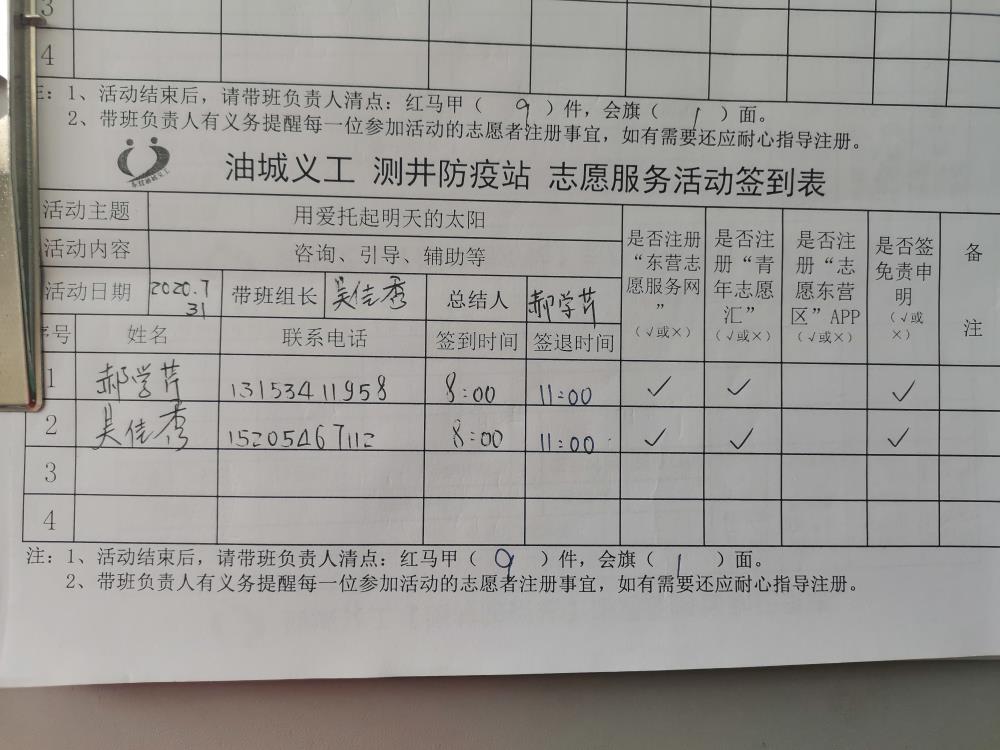 3
4
注：1、活动结束后，请带班负责人清点：红马甲（ 9 ）件，会旗（ 1 ）面。
2、带班负责人有义务提醒每一位参加活动的志愿者注册事宜，如有需要还应耐心指导注册。
油城义工 测井防疫站 志愿服务活动签到表
活动主题 用爱托起明天的太阳 是否注册“东营志愿服务网”（√或×） 是否注册“青年志愿汇”（√或×） 是否注册“志愿东营区”APP（√或×） 是否签免责申明（√或×） 备注
活动内容 咨询、引导、辅助等
活动日期 2020.7 31 带班组长 吴佳秀 总结人 郝学芹
序号 姓名 联系电话 签到时间 签退时间
1 郝学芹 13153411958 8:00 11:00 ✓ ✓ ✓
2 吴佳秀 15205467112 8:00 11:00 ✓ ✓ ✓
3
4
注：1、活动结束后，请带班负责人清点：红马甲（ 9 ）件，会旗（ 1 ）面。
2、带班负责人有义务提醒每一位参加活动的志愿者注册事宜，如有需要还应耐心指导注册。